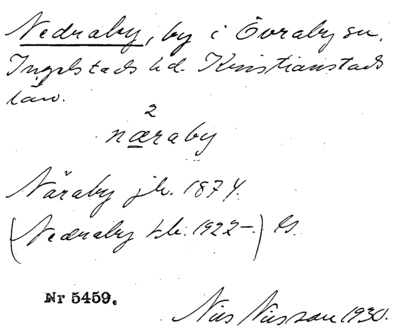 Nedraby, by i Övraby sn,
Ingelstads hd. Kristianstads
län.
2
næraby
Näraby jb. 1874.
(Nedraby tb. 1922–)
Nr 5459.
Nils Nilsson 1930.